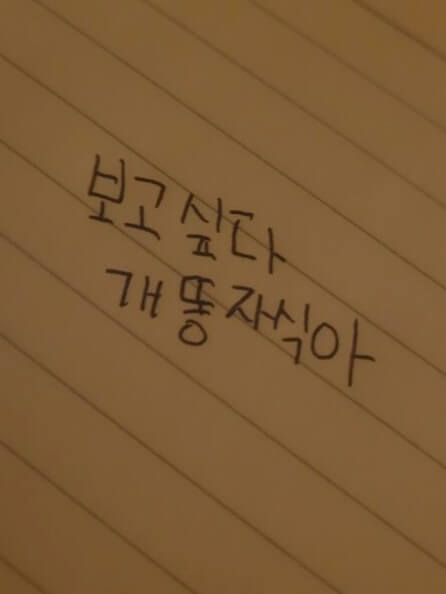 보고싶다
개똥자식아